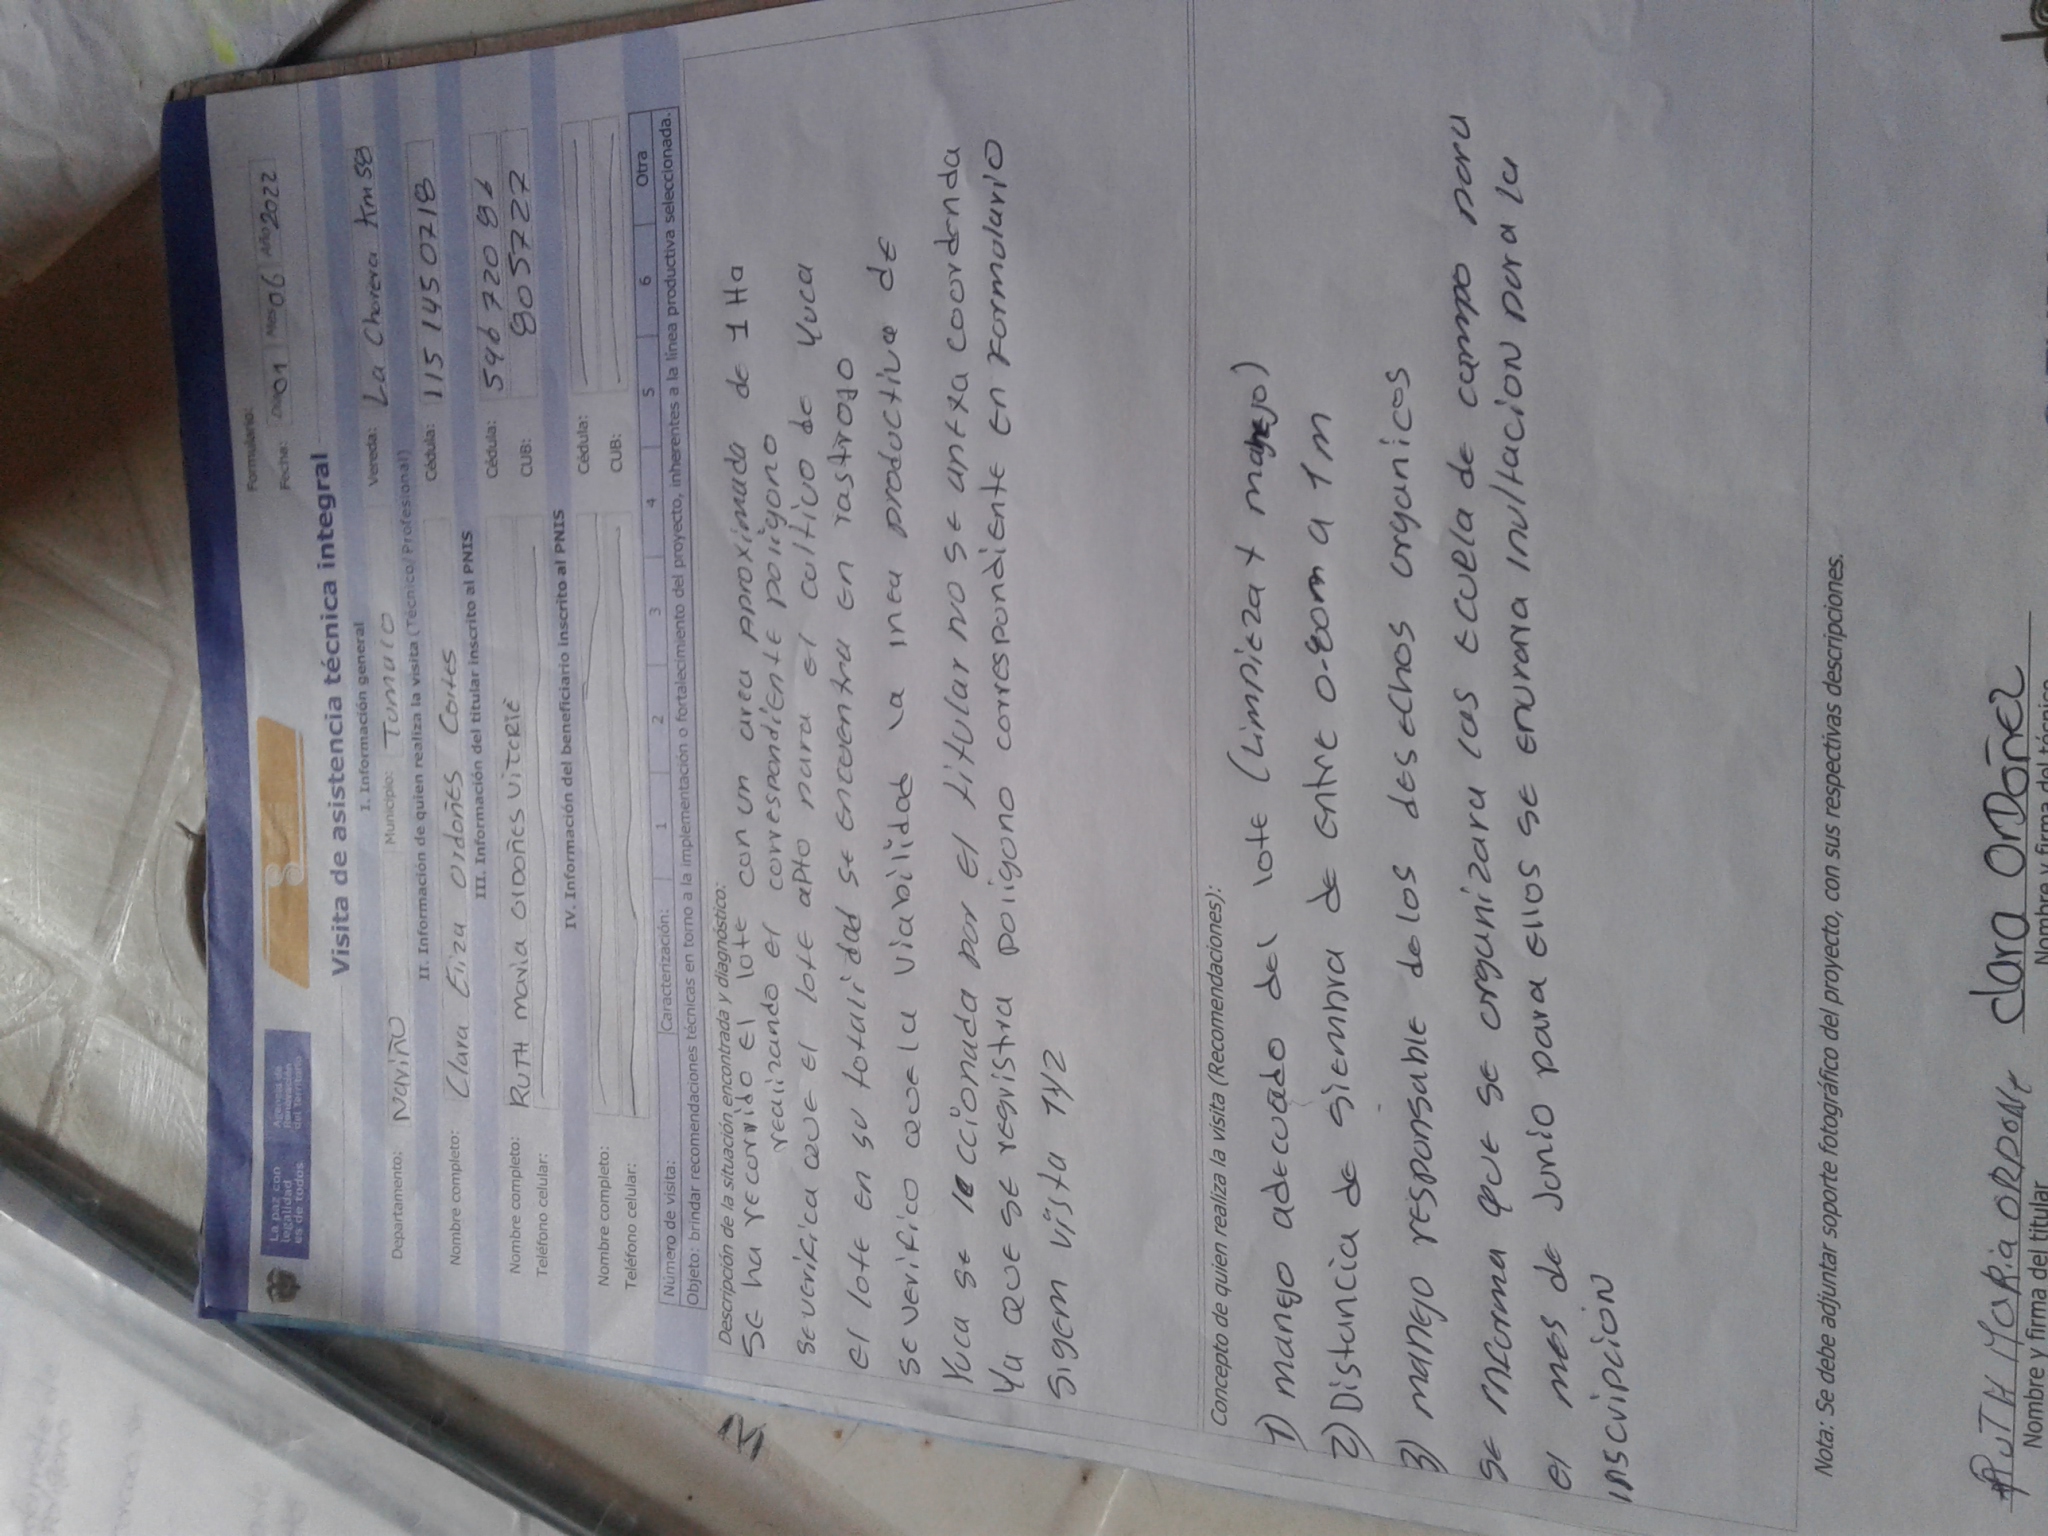 La paz con
legalidad
es de todos
Agencia de
Renovación
del Territorio
Formulario:
Fecha: Día 01 Mes 06 Año 2022
Visita de asistencia técnica integral
I. Información general
Departamento: Nariño Municipio: Tumaco Vereda: La Chorera Km 58
II. Información de quien realiza la visita (Técnico/Profesional)
Nombre completo: Clara Eliza Ordoñes Cortes Cédula: 115 145 0718
III. Información del titular inscrito al PNIS
Nombre completo: RUTH maria ordoñes viterie Cédula:
Teléfono celular: CUB: 805727
IV. Información del beneficiario inscrito al PNIS
Nombre completo: Cédula:
Teléfono celular: CUB:
Número de visita: Caracterización: 1 2 3 4 5 6 Otra
Objeto: brindar recomendaciones técnicas en torno a la implementación o fortalecimiento del proyecto, inherentes a la línea productiva seleccionada.
Descripción de la situación encontrada y diagnóstico:
Se ha recorrido el lote con un area aproximada de 1 Ha
realizando el correspondiente poligono
se verifica que el lote apto para el cultivo de yuca
el lote en su totalidad se encuentra en rastrojo
se verifico que la viabilidad la inea productiva de
Yuca se leccionada por el titular no se anexa coordenda
Ya que se registra poligono correspondiente en Formolario
sigem vista 1y2
Concepto de quien realiza la visita (Recomendaciones):
1) manejo adecuado del lote (Limpieza + manejo)
2) Distancia de siembra de entre 0-80m a 1m
3) manejo responsable de los desechos organicos
se informa que se organizara las ecuela de campo para
el mes de Junio para ellos se enviara para la
inscripcion
Nota: Se debe adjuntar soporte fotográfico del proyecto, con sus respectivas descripciones.
RUTH MARia ORDOÑE Clara Ordoñez
Nombre y firma del titular Nombre y firma del técnico